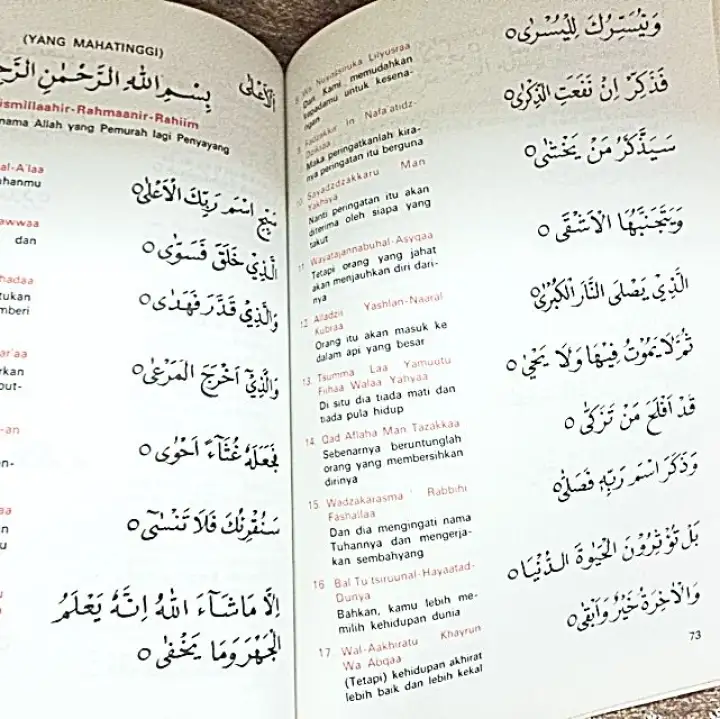 (YANG MAHATINGGI)
الْاَعْلٰى
بِسْمِ اللّٰهِ الرَّحْمٰنِ
ismillaahir-Rahmaanir-Rahiim
nama Allah yang Pemurah lagi Penyayang
al-A'laa
hanmu
سَبِّحِ اسْمَ رَبِّكَ الْاَعْلٰىۙ
awwaa
dan
الَّذِيْ خَلَقَ فَسَوّٰىۙ
hadaa
tukan
mberi
وَالَّذِيْ قَدَّرَ فَهَدٰىۙ
ar'aa
rkan
put-
وَالَّذِيْٓ اَخْرَجَ الْمَرْعٰىۙ
-an
n-
فَجَعَلَهٗ غُثَاۤءً اَحْوٰىۗ
aa
n
u
سَنُقْرِئُكَ فَلَا تَنْسٰىٓۙ
اِلَّا مَا شَاۤءَ اللّٰهُ اِنَّهٗ يَعْلَمُ
الْجَهْرَ وَمَا يَخْفٰىۗ
8 Wa Nuyassiruka Lilyusraa
Dan Kami memudahkan
kepadamu untuk kesena-
ngan
وَنُيَسِّرُكَ لِلْيُسْرٰىۖ
9 Fadzakkir In Nafa'atidz-
Dzikraa
Maka peringatkanlah kira-
nya peringatan itu berguna
فَذَكِّرْ اِنْ نَّفَعَتِ الذِّكْرٰىۗ
10 Sayadzdzakkaru Man
Yakhsya
Nanti peringatan itu akan
diterima oleh siapa yang
takut
سَيَذَّكَّرُ مَنْ يَّخْشٰىۙ
11 Wayatajannabuhal-Asyqaa
Tetapi orang yang jahat
akan menjauhkan diri dari-
nya
وَيَتَجَنَّبُهَا الْاَشْقَىۙ
12 Alladzii Yashlan-Naaral
Kubraa
Orang itu akan masuk ke
dalam api yang besar
الَّذِيْ يَصْلَى النَّارَ الْكُبْرٰىۚ
13. Tsumma Laa Yamuutu
Fiihaa Walaa Yahyaa
Di situ dia tiada mati dan
tiada pula hidup
ثُمَّ لَا يَمُوْتُ فِيْهَا وَلَا يَحْيٰىۗ
14. Qad Aflaha Man Tazakkaa
Sebenarnya beruntunglah
orang yang membersihkan
dirinya
قَدْ اَفْلَحَ مَنْ تَزَكّٰىۙ
15. Wadzakarasma Rabbihi
Fashallaa
Dan dia mengingati nama
Tuhannya dan mengerja-
kan sembahyang
وَذَكَرَ اسْمَ رَبِّهٖ فَصَلّٰىۗ
16 Bal Tu'tsiruunal-Hayaatad-
Dunya
Bahkan, kamu lebih me-
milih kehidupan dunia
بَلْ تُؤْثِرُوْنَ الْحَيٰوةَ الدُّنْيَاۖ
17 Wal-Aakhiratu Khayrun
Wa Abqaa
(Tetapi) kehidupan akhirat
lebih baik dan lebih kekal
وَالْاٰخِرَةُ خَيْرٌ وَّاَبْقٰىۗ
73